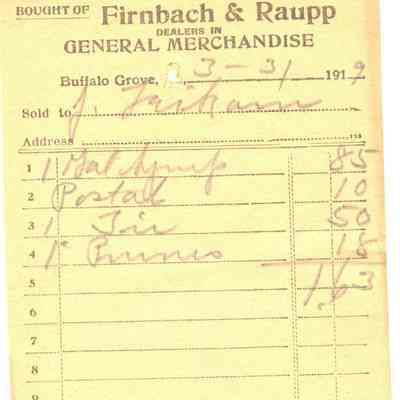 BOUGHT OF Firnbach & Raupp
DEALERS IN
GENERAL MERCHANDISE
Buffalo Grove, 3-31 1919
Sold to J.
Address
1 1 85
2 Postal 10
3 1 Tie 50
4 1 Prunes 18
5 1.63
6
7
8
9